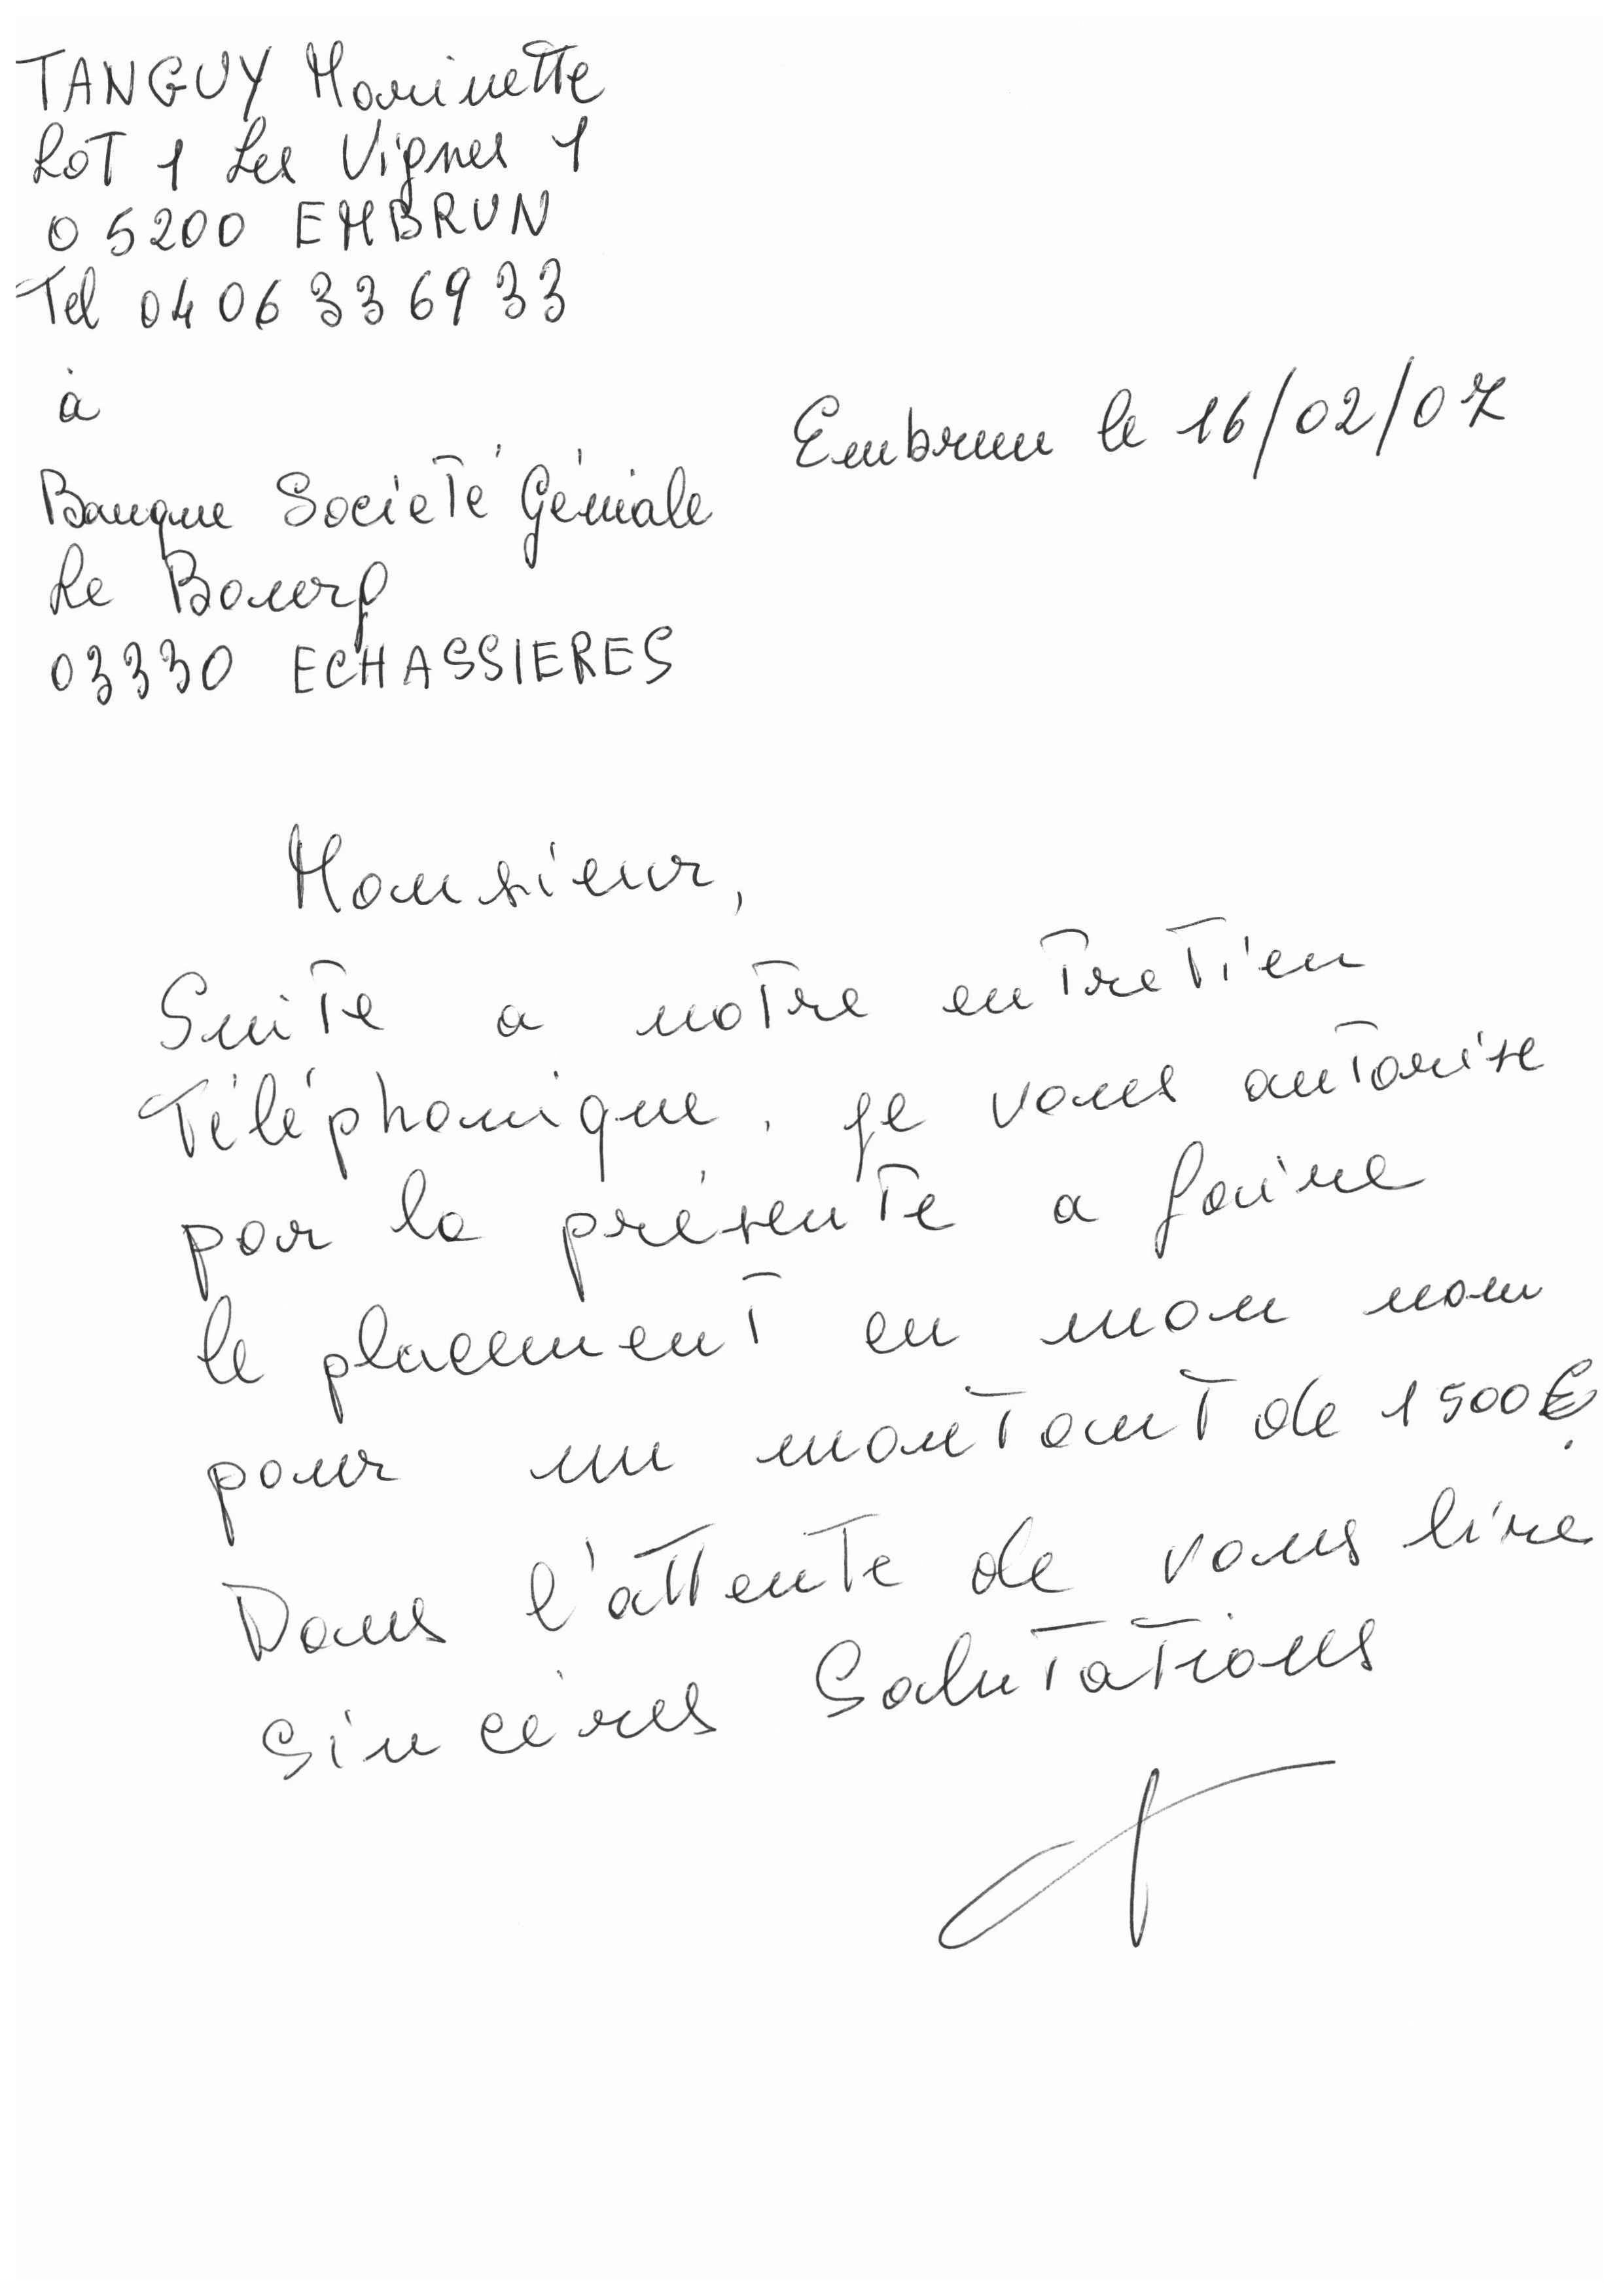 TANGUY Marinette
LOT 1 Les Vignes 1
05200 EMBRUN
Tel 04 06 33 69 33
à
Embrun le 16/02/07
Banque Société Géniale
Le Bourg
03330 ECHASSIERES
Monsieur,
Suite a notre entretien
téléphonique, je vous autorise
par la présente a faire
le placement en mon nom
pour un montant de 1500€.
Dans l'attente de vous lire
sincères Salutations